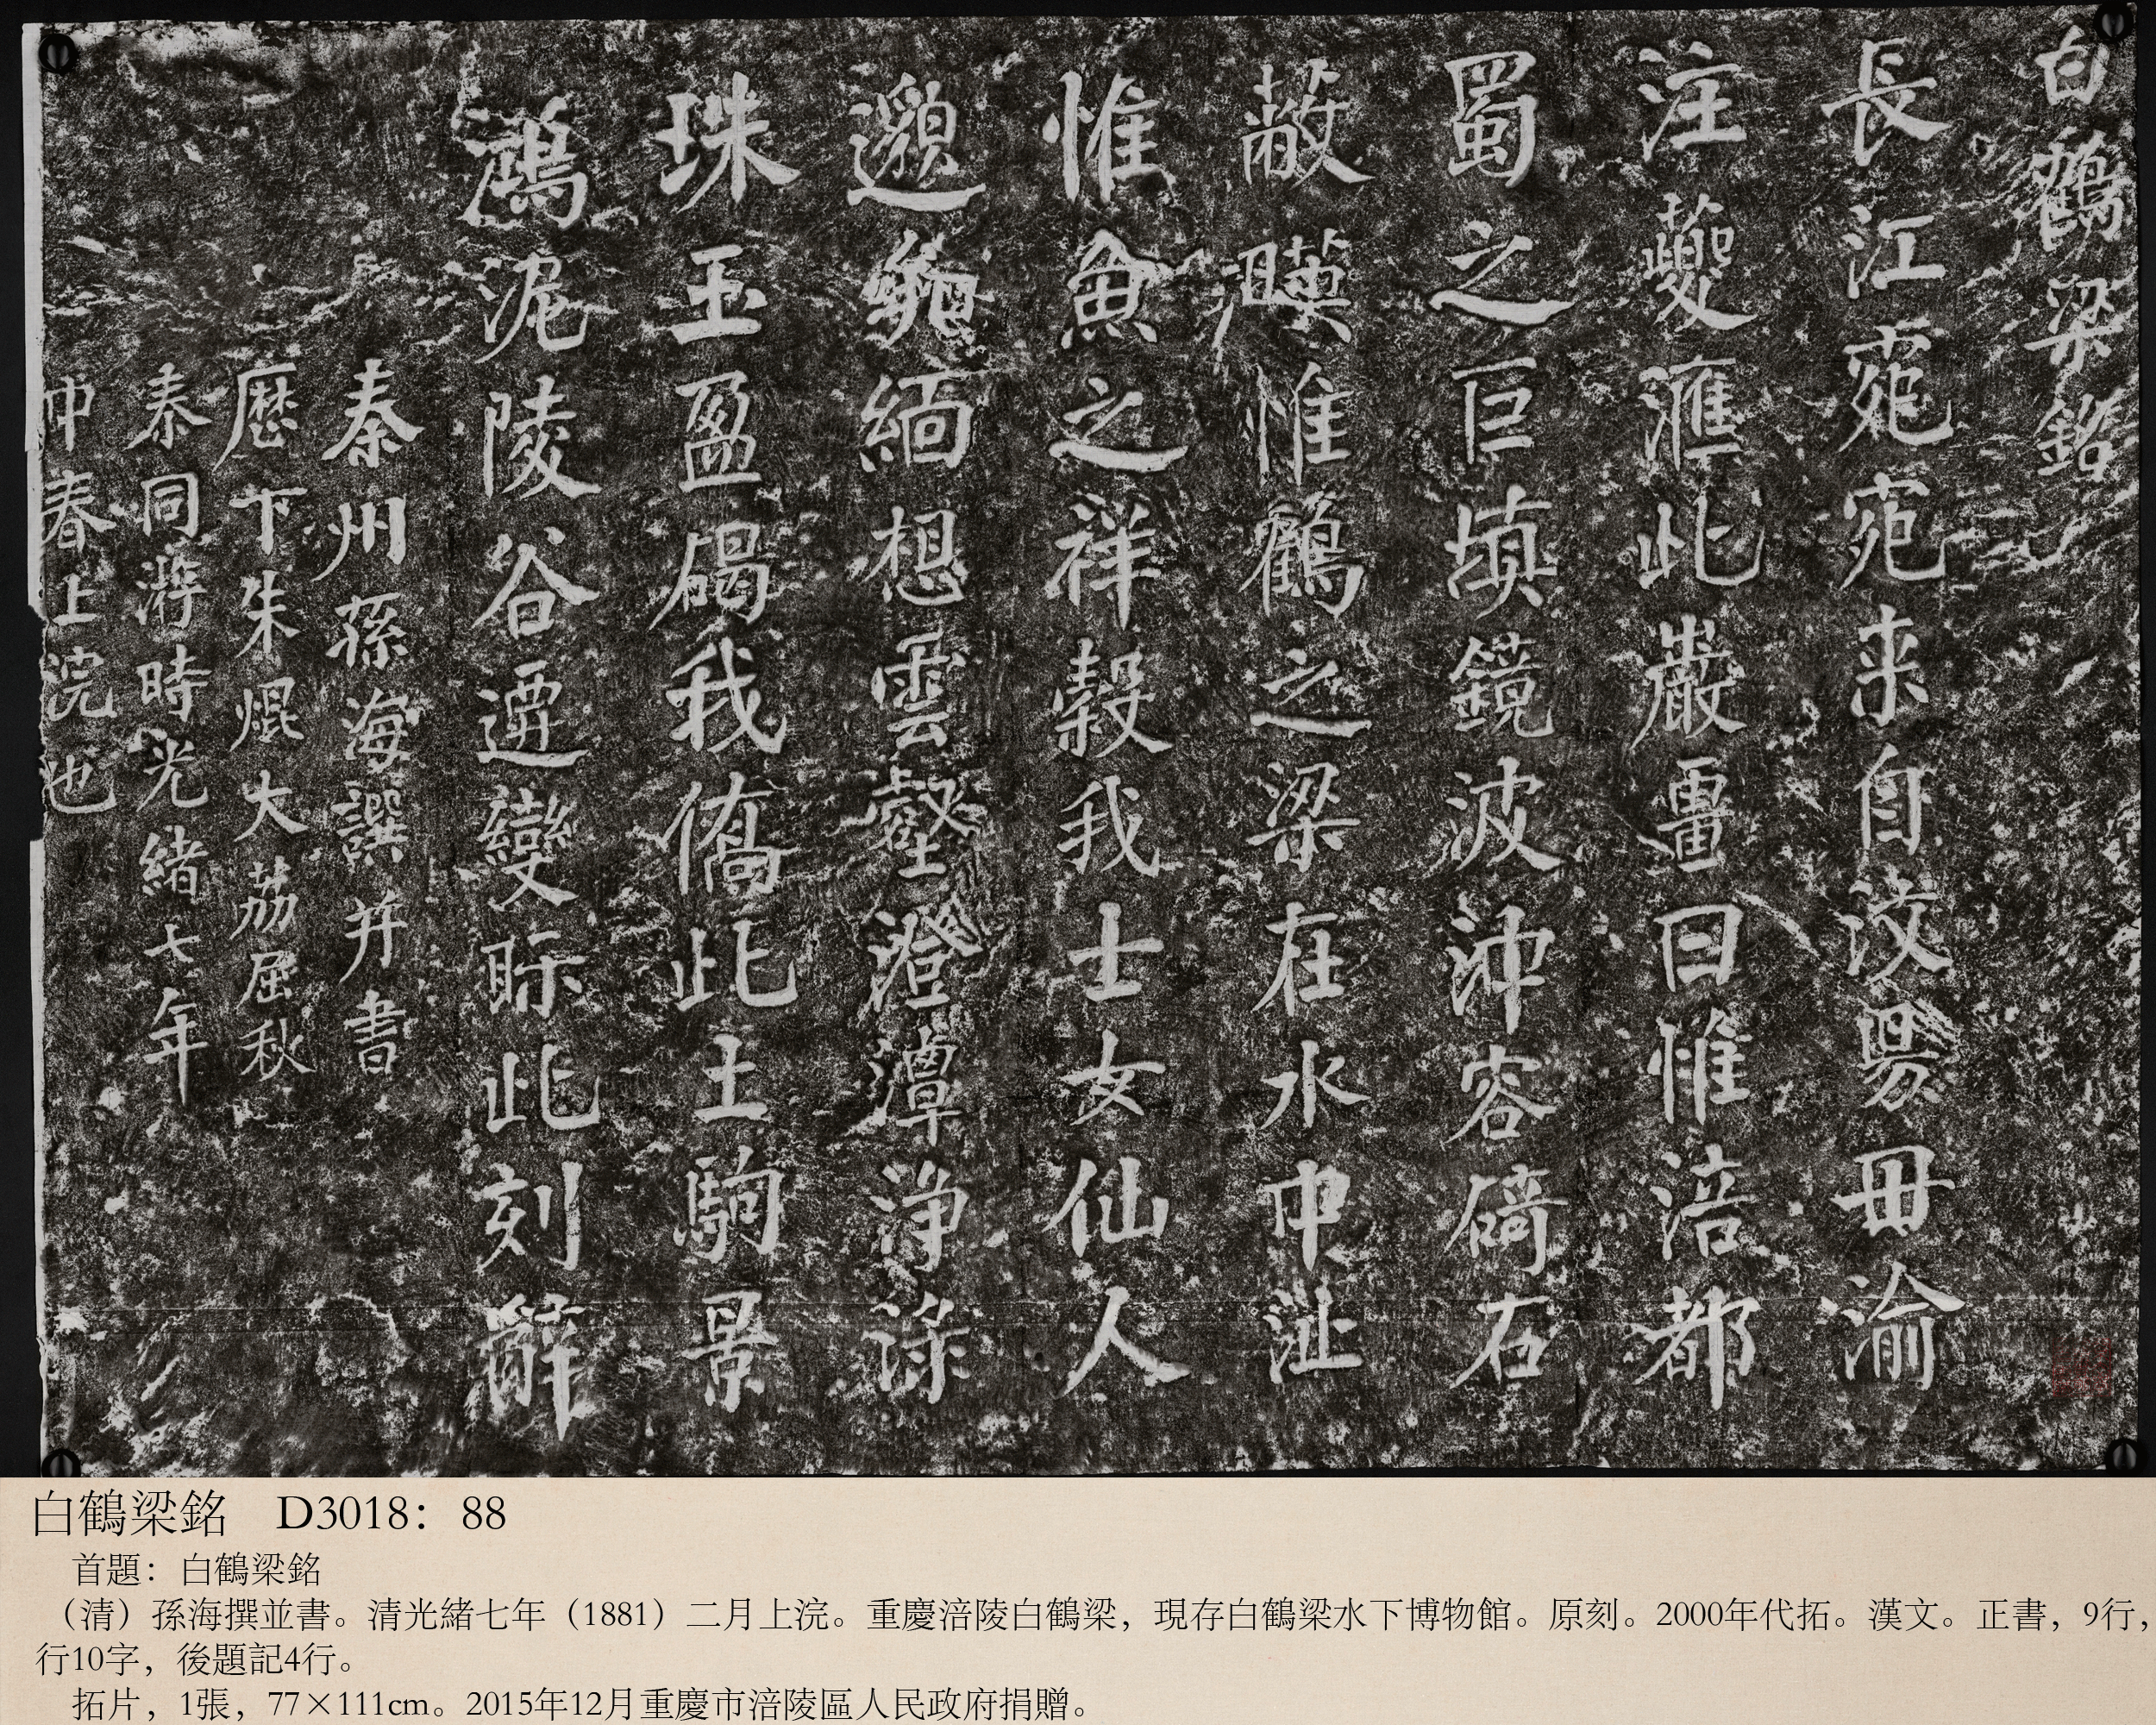 白鶴梁銘
長江宛宛来自汶易毌渝
注夔滙此巖畺曰惟涪都
蜀之巨填鏡波沖容碕石
蔽暎惟鶴之梁在水中沚
惟魚之祥穀我士女仙人
邈緬想雲壑澄潭浄渌
珠玉盈碣我僑此土駒景
鴻泥陵谷遷變眎此刻辭
秦州孫海譔并書
歷下朱焜大荔屈秋
泰同游時光緒七年
仲春上浣也
白鶴梁銘 D3018：88
首題：白鶴梁銘
（清）孫海撰並書。清光緒七年（1881）二月上浣。重慶涪陵白鶴梁，現存白鶴梁水下博物館。原刻。2000年代拓。漢文。正書，9行，
行10字，後題記4行。
拓片，1張，77×111cm。2015年12月重慶市涪陵區人民政府捐贈。